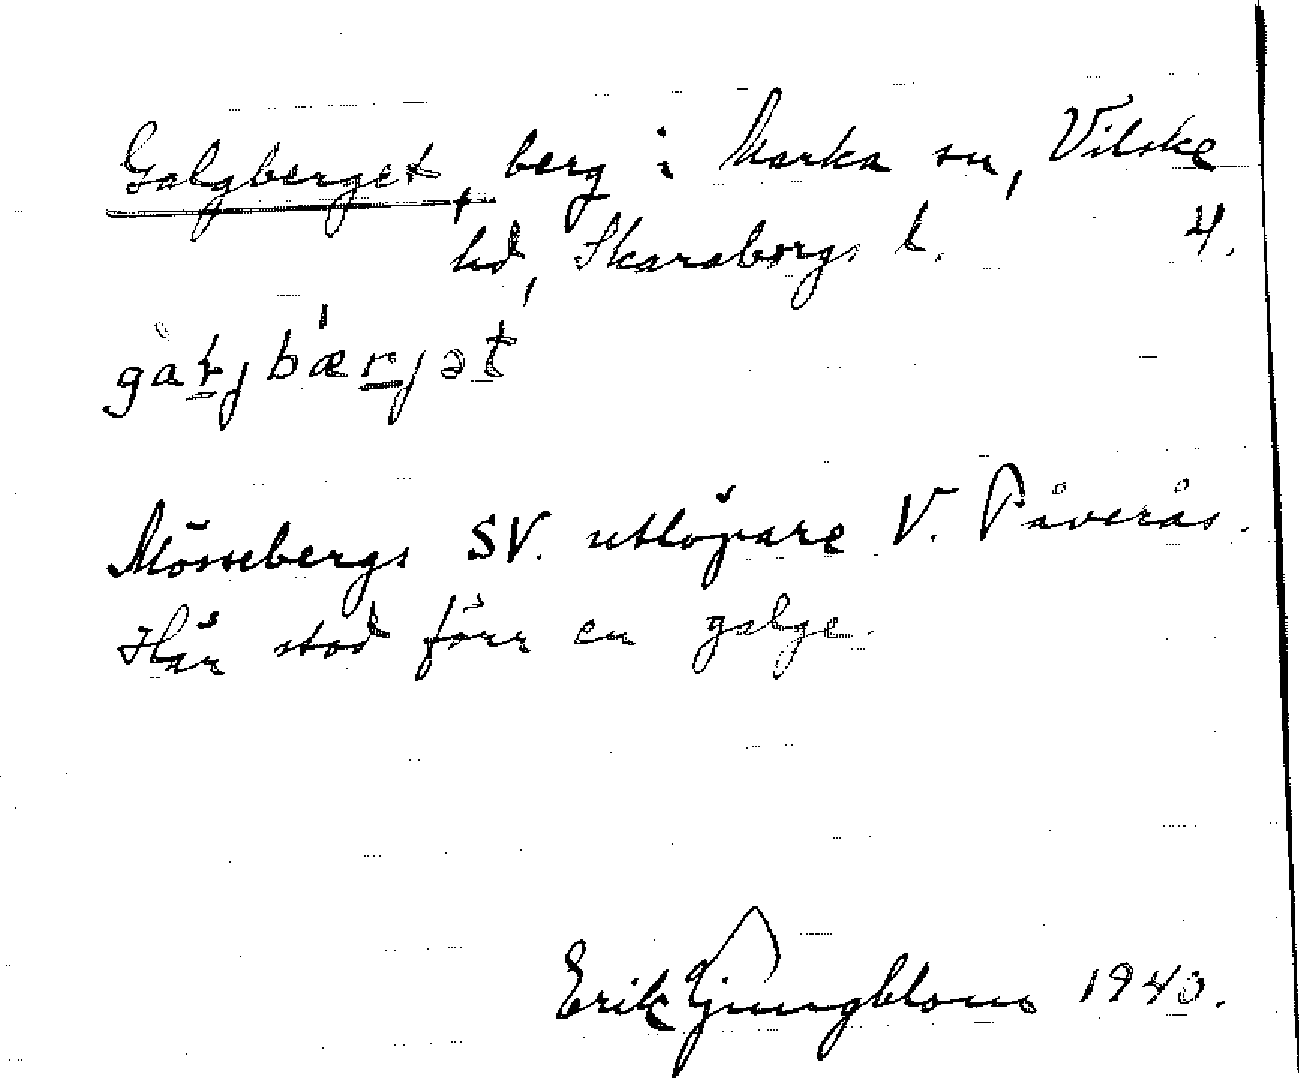 Galgberget, berg i Marka sn, Vilske
hd, Skaraborgs l. 4.
gàɫjbæ̀rjət
Mössebergs SV. utlöpare V. Påverås.
Här stod förr en galge.
Erik Ljungblom 1940.